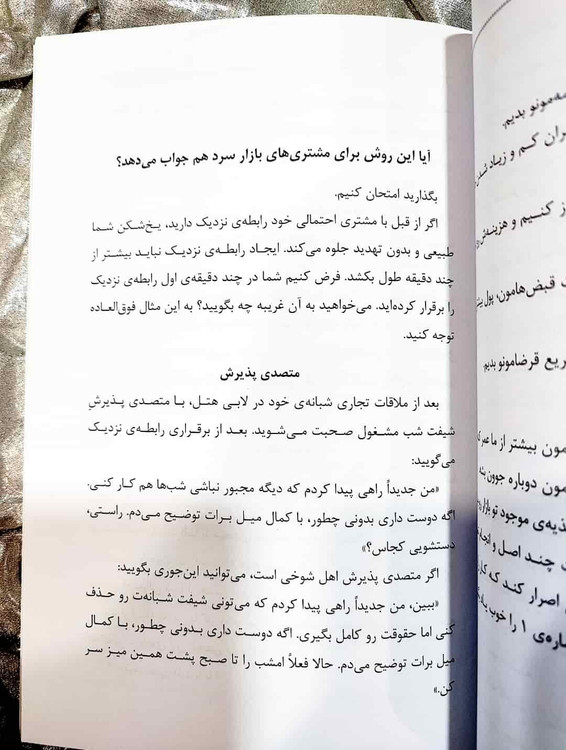 آیا این روش برای مشتری‌های بازار سرد هم جواب می‌دهد؟
بگذارید امتحان کنیم.
اگر از قبل با مشتری احتمالی خود رابطه‌ی نزدیک دارید، یخ‌شکن شما
طبیعی و بدون تهدید جلوه می‌کند. ایجاد رابطه‌ی نزدیک نباید بیشتر از
چند دقیقه طول بکشد. فرض کنیم شما در چند دقیقه‌ی اول رابطه‌ی نزدیک
را برقرار کرده‌اید. می‌خواهید به آن غریبه چه بگویید؟ به این مثال فوق‌العاده
توجه کنید.
متصدی پذیرش
بعد از ملاقات تجاری شبانه‌ی خود در لابی هتل، با متصدی پذیرش
شیفت شب مشغول صحبت می‌شوید. بعد از برقراری رابطه‌ی نزدیک
می‌گویید:
«من جدیداً راهی پیدا کردم که دیگه مجبور نباشی شب‌ها هم کار کنی.
اگه دوست داری بدونی چطور، با کمال میل برات توضیح می‌دم. راستی،
دستشویی کجاس؟»
اگر متصدی پذیرش اهل شوخی است، می‌توانید این‌جوری بگویید:
«ببین، من جدیداً راهی پیدا کردم که می‌تونی شیفت شبانه‌ت رو حذف
کنی اما حقوقت رو کامل بگیری. اگه دوست داری بدونی چطور، با کمال
میل برات توضیح می‌دم. حالا فعلاً امشب را تا صبح پشت همین میز سر
کن.»
مونو بدیم.
ران کم و زیاد شدن
ز کنیم و هزینه‌ش
قبض‌هامون، پول
ریع قرضامونو بدیم
مون بیشتر از ما عمر
مون دوباره جوون بشه
ذیه‌ی موجود تو بازار
چند اصل و ایجاد
اصرار کند که
ماره‌ی ۱ را خوب